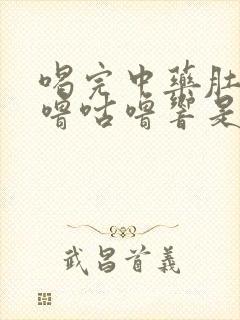 喝完中藥肚
嚕咕嚕響是
武昌首義